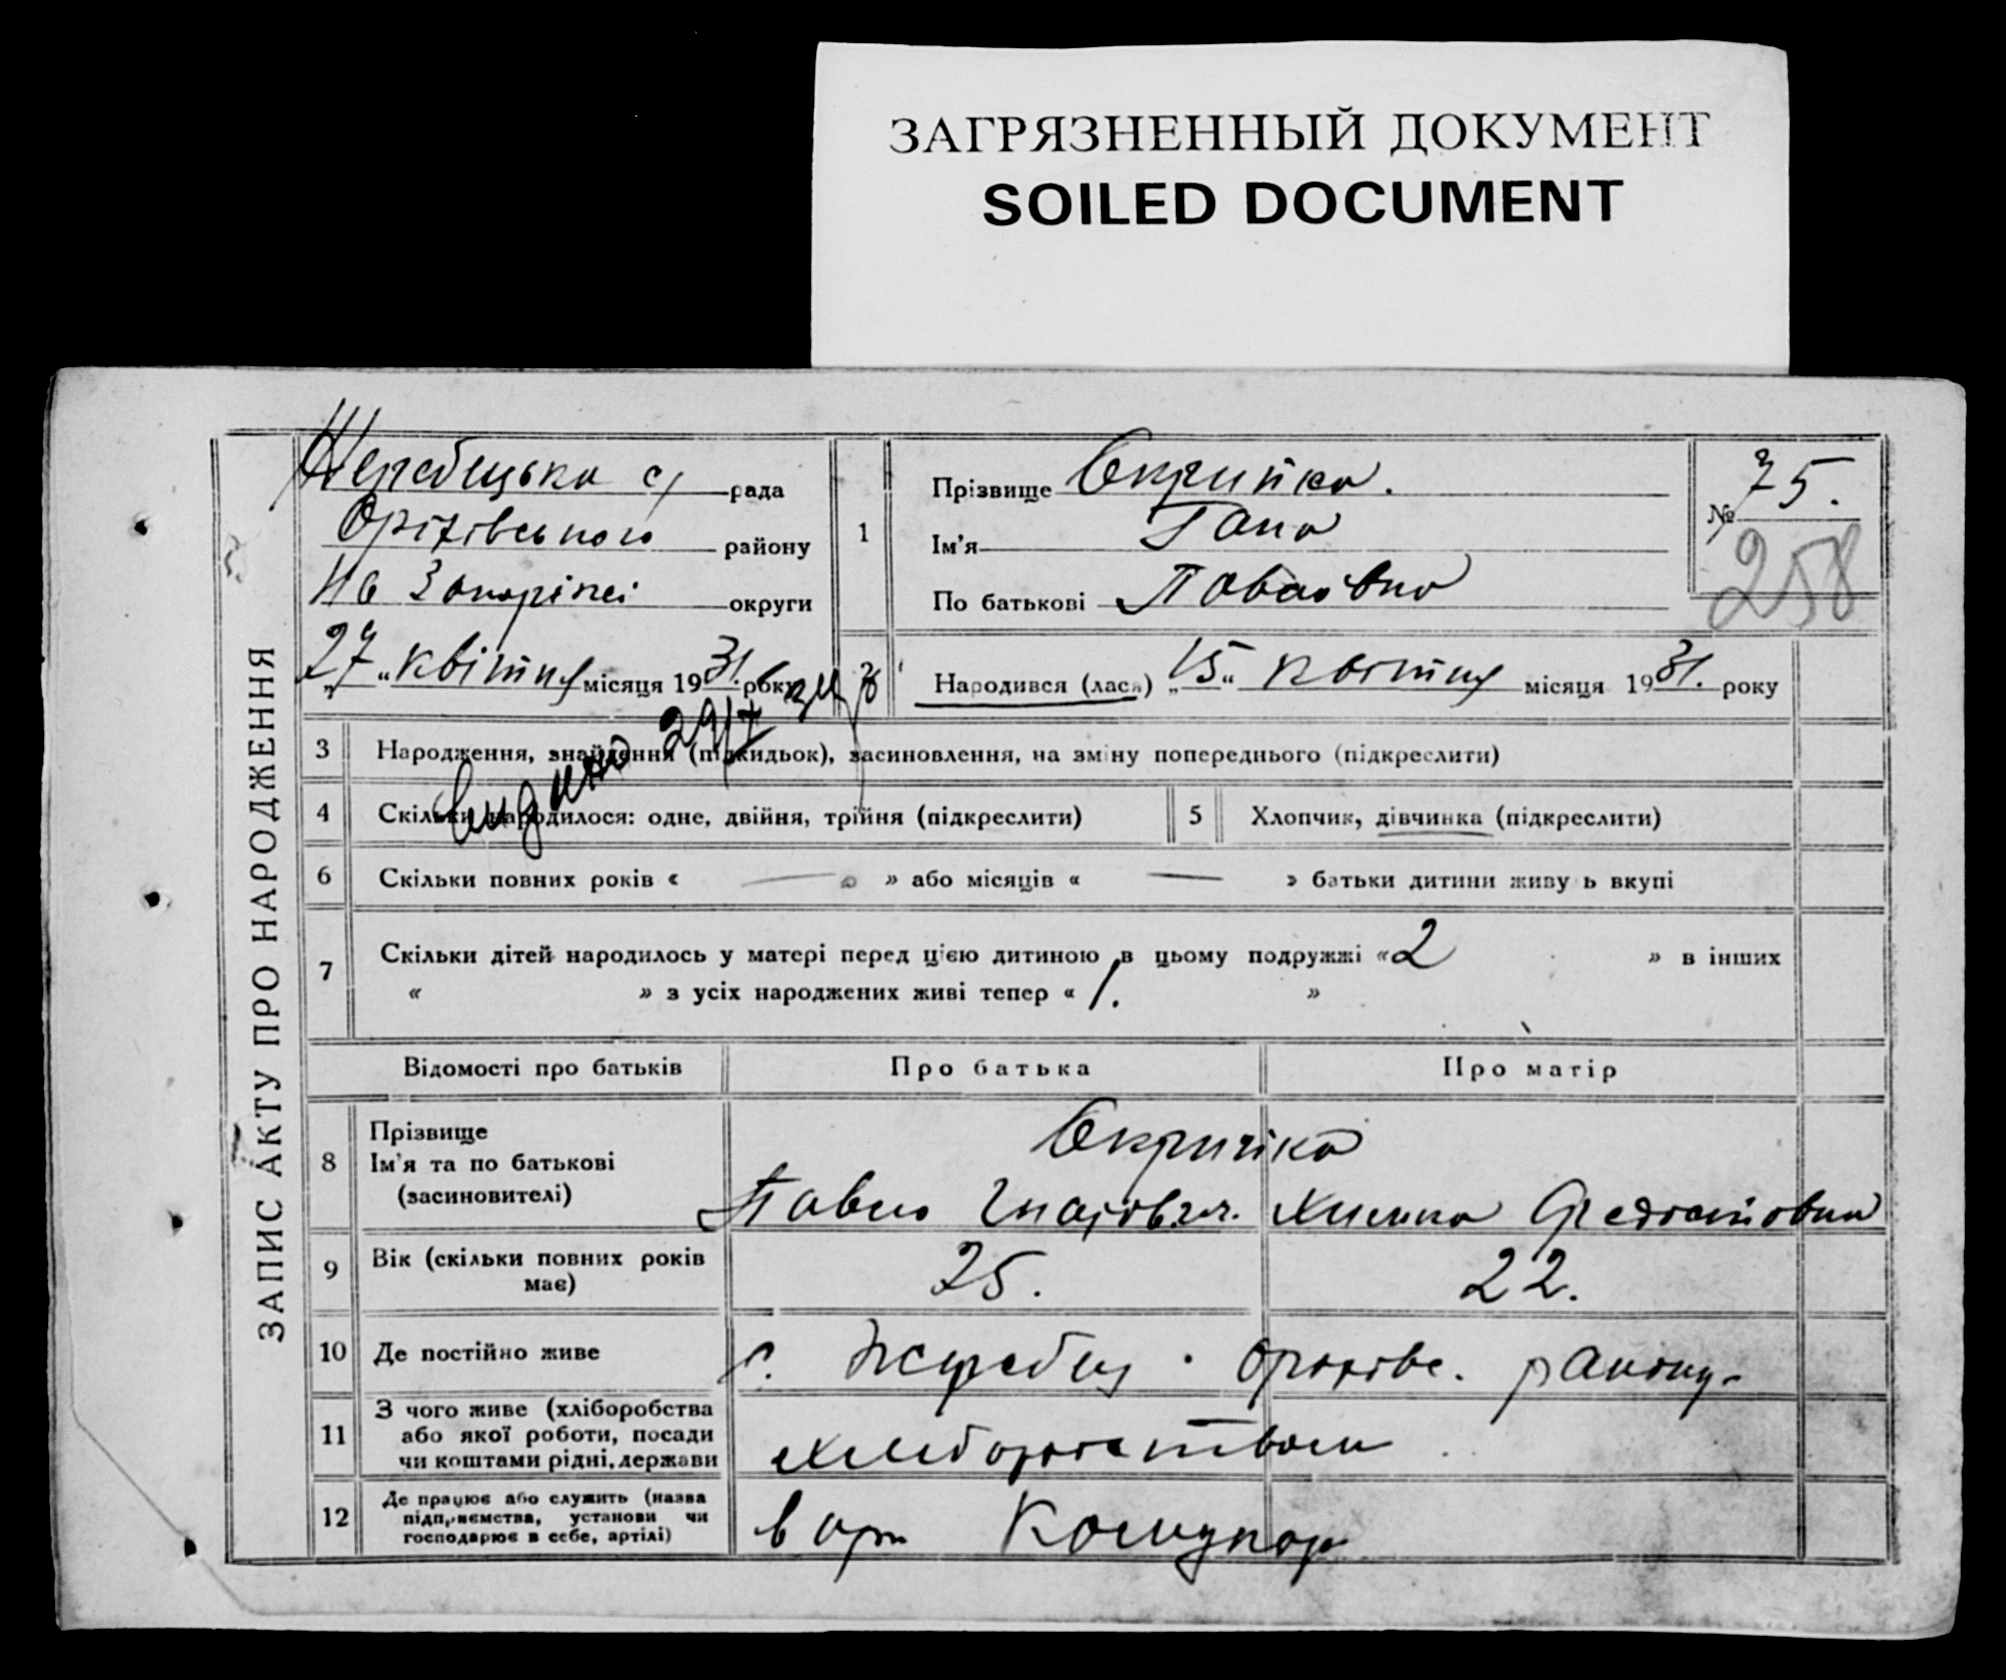 ЗАГРЯЗНЕННЫЙ ДОКУМЕНТ
SOILED DOCUMENT
ЗАПИС АКТУ ПРО НАРОДЖЕННЯ
Жеребецька с/ рада
Оріхівського району
На Запоріжі округи
„27“ квітня місяця 1931. року
Видано 29/X
1
Прізвище Скрипка.
Ім'я Гана
По батькові Павловна
№ 75.
258
Народився (лася) „15“ квітня місяця 1931. року
3 Народження, знайдення (підкидьок), засиновлення, на зміну попереднього (підкреслити)
4 Скільки народилося: одне, двійня, трійня (підкреслити)
5 Хлопчик, дівчинка (підкреслити)
6 Скільки повних років « — » або місяців « — » батьки дитини живуть вкупі
7 Скільки дітей народилось у матері перед цією дитиною в цьому подружжі «2 » в інших
« » з усіх народжених живі тепер « 1. »
Відомості про батьків Про батька Про матір
8 Прізвище
Ім'я та по батькові
(засиновителі)
Скрипка
Павло Гнатович. Химка Федосіовна
9 Вік (скільки повних років
має)
25. 22.
10 Де постійно живе с. Жеребец . Оріхівс. району
11 З чого живе (хліборобства
або якої роботи, посади
чи коштами рідні, держави
хлеборобством
12 Де працює або служить (назва
підприємства, установи чи
господарює в себе, артілі)
в арт Комунар